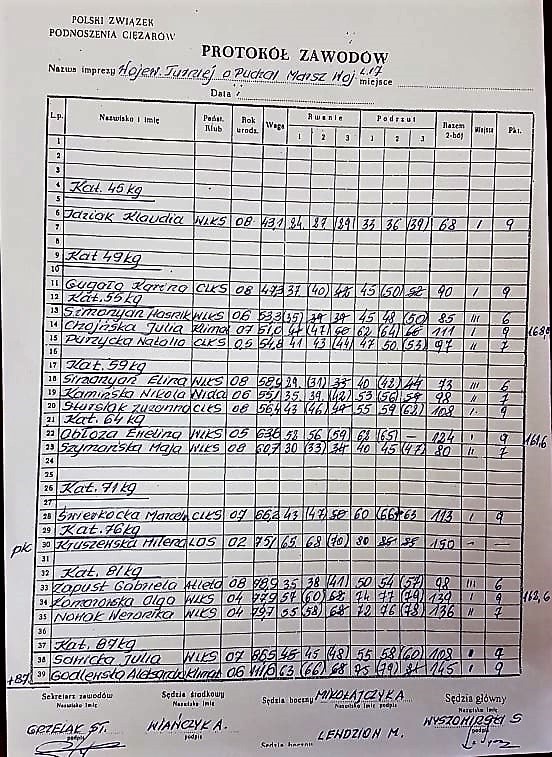 POLSKI ZWIĄZEK
PODNOSZENIA CIĘŻARÓW
PROTOKÓŁ ZAWODÓW
Nazwa imprezy Wojew. Turniej o Puchar Marsz Woj miejsce
Data
L.p. Nazwisko i imię Państ. Klub Rok urodz. Waga Rwanie 1 2 3 Podrzut 1 2 3 Razem 2-bój Miejsce Pkt.
1
2
3
4 Kat. 45 kg
5
6 Jaziak Klaudia WLKS 08 43,1 24 27 (29) 33 36 (39) 68 I 9
7
8
9 Kat 49 kg
10
11 Gugała Karina CLKS 08 47,3 37 (40) 45 (50) 52 90 I 9
12 Kat. 55 kg
13 Simonyan Hasmik WLKS 06 53,3 (35) 39 39 45 48 (50) 85 III 6
14 Chojińska Julia Klimat 07 (47) 62 (64) 111 I 9 168,5
15 Purzycka Natalia CLKS 05 54,8 41 43 (44) 47 50 (53) 97 II 7
16
17 Kat. 59 kg
18 Simonyan Elina WLKS 08 58,9 29 (31) 33 40 (42) 44 73 III 6
19 Kamińska Nikola Nida 06 55,1 35 39 (42) 53 (56) 59 98 II 7
20 Stursiak Zuzanna CLKS 08 56,4 43 (46) 55 59 (62) 108 I 9
21 Kat. 64 kg
22 Obłoza Ewelina WLKS 05 63,6 53 56 59 62 (65) — 124 I 9 161,6
23 Szymańska Maja WLKS 08 60,7 30 (33) 40 45 (47) 80 II 7
24
25
26 Kat. 71 kg
27
28 Świerkocka CLKS 07 66,2 43 (47) 50 60 (66) 113 I 9
29 Kat. 76 kg
pk 30 Kruszewska Milena LOS 02 75,1 65 68 (70) 80 85 85 150 — —
31
32 Kat. 81 kg
33 Zapust Gabriela Atleta 08 78,9 35 38 (41) 50 54 (57) 98 III 6
34 Komorowska Olga WLKS 04 77,9 57 (60) 74 77 (79) 139 I 9 162,6
35 Nowak Weronika WLKS 04 79,7 55 (58) 72 76 (78) 136 II 7
36
37 Kat. 87 kg
38 Sawicka Julia WLKS 07 86,5 45 45 (48) 55 58 (60) 108 9
+87 39 Godlewska Aleksandra Klimat 06 63 (66) 68 75 (79) 145 I 9
Sekretarz zawodów Sędzia środkowy Sędzia boczny MIKOŁAJCZYK A. Sędzia główny
Nazwisko Imię Nazwisko Imię Nazwisko Imię Nazwisko Imię
GRZELAK ST. WIAŃCZYK A. podpis WYSZOMIRSKI S
podpis podpis LENDZION M. podpis
Sędzia boczny